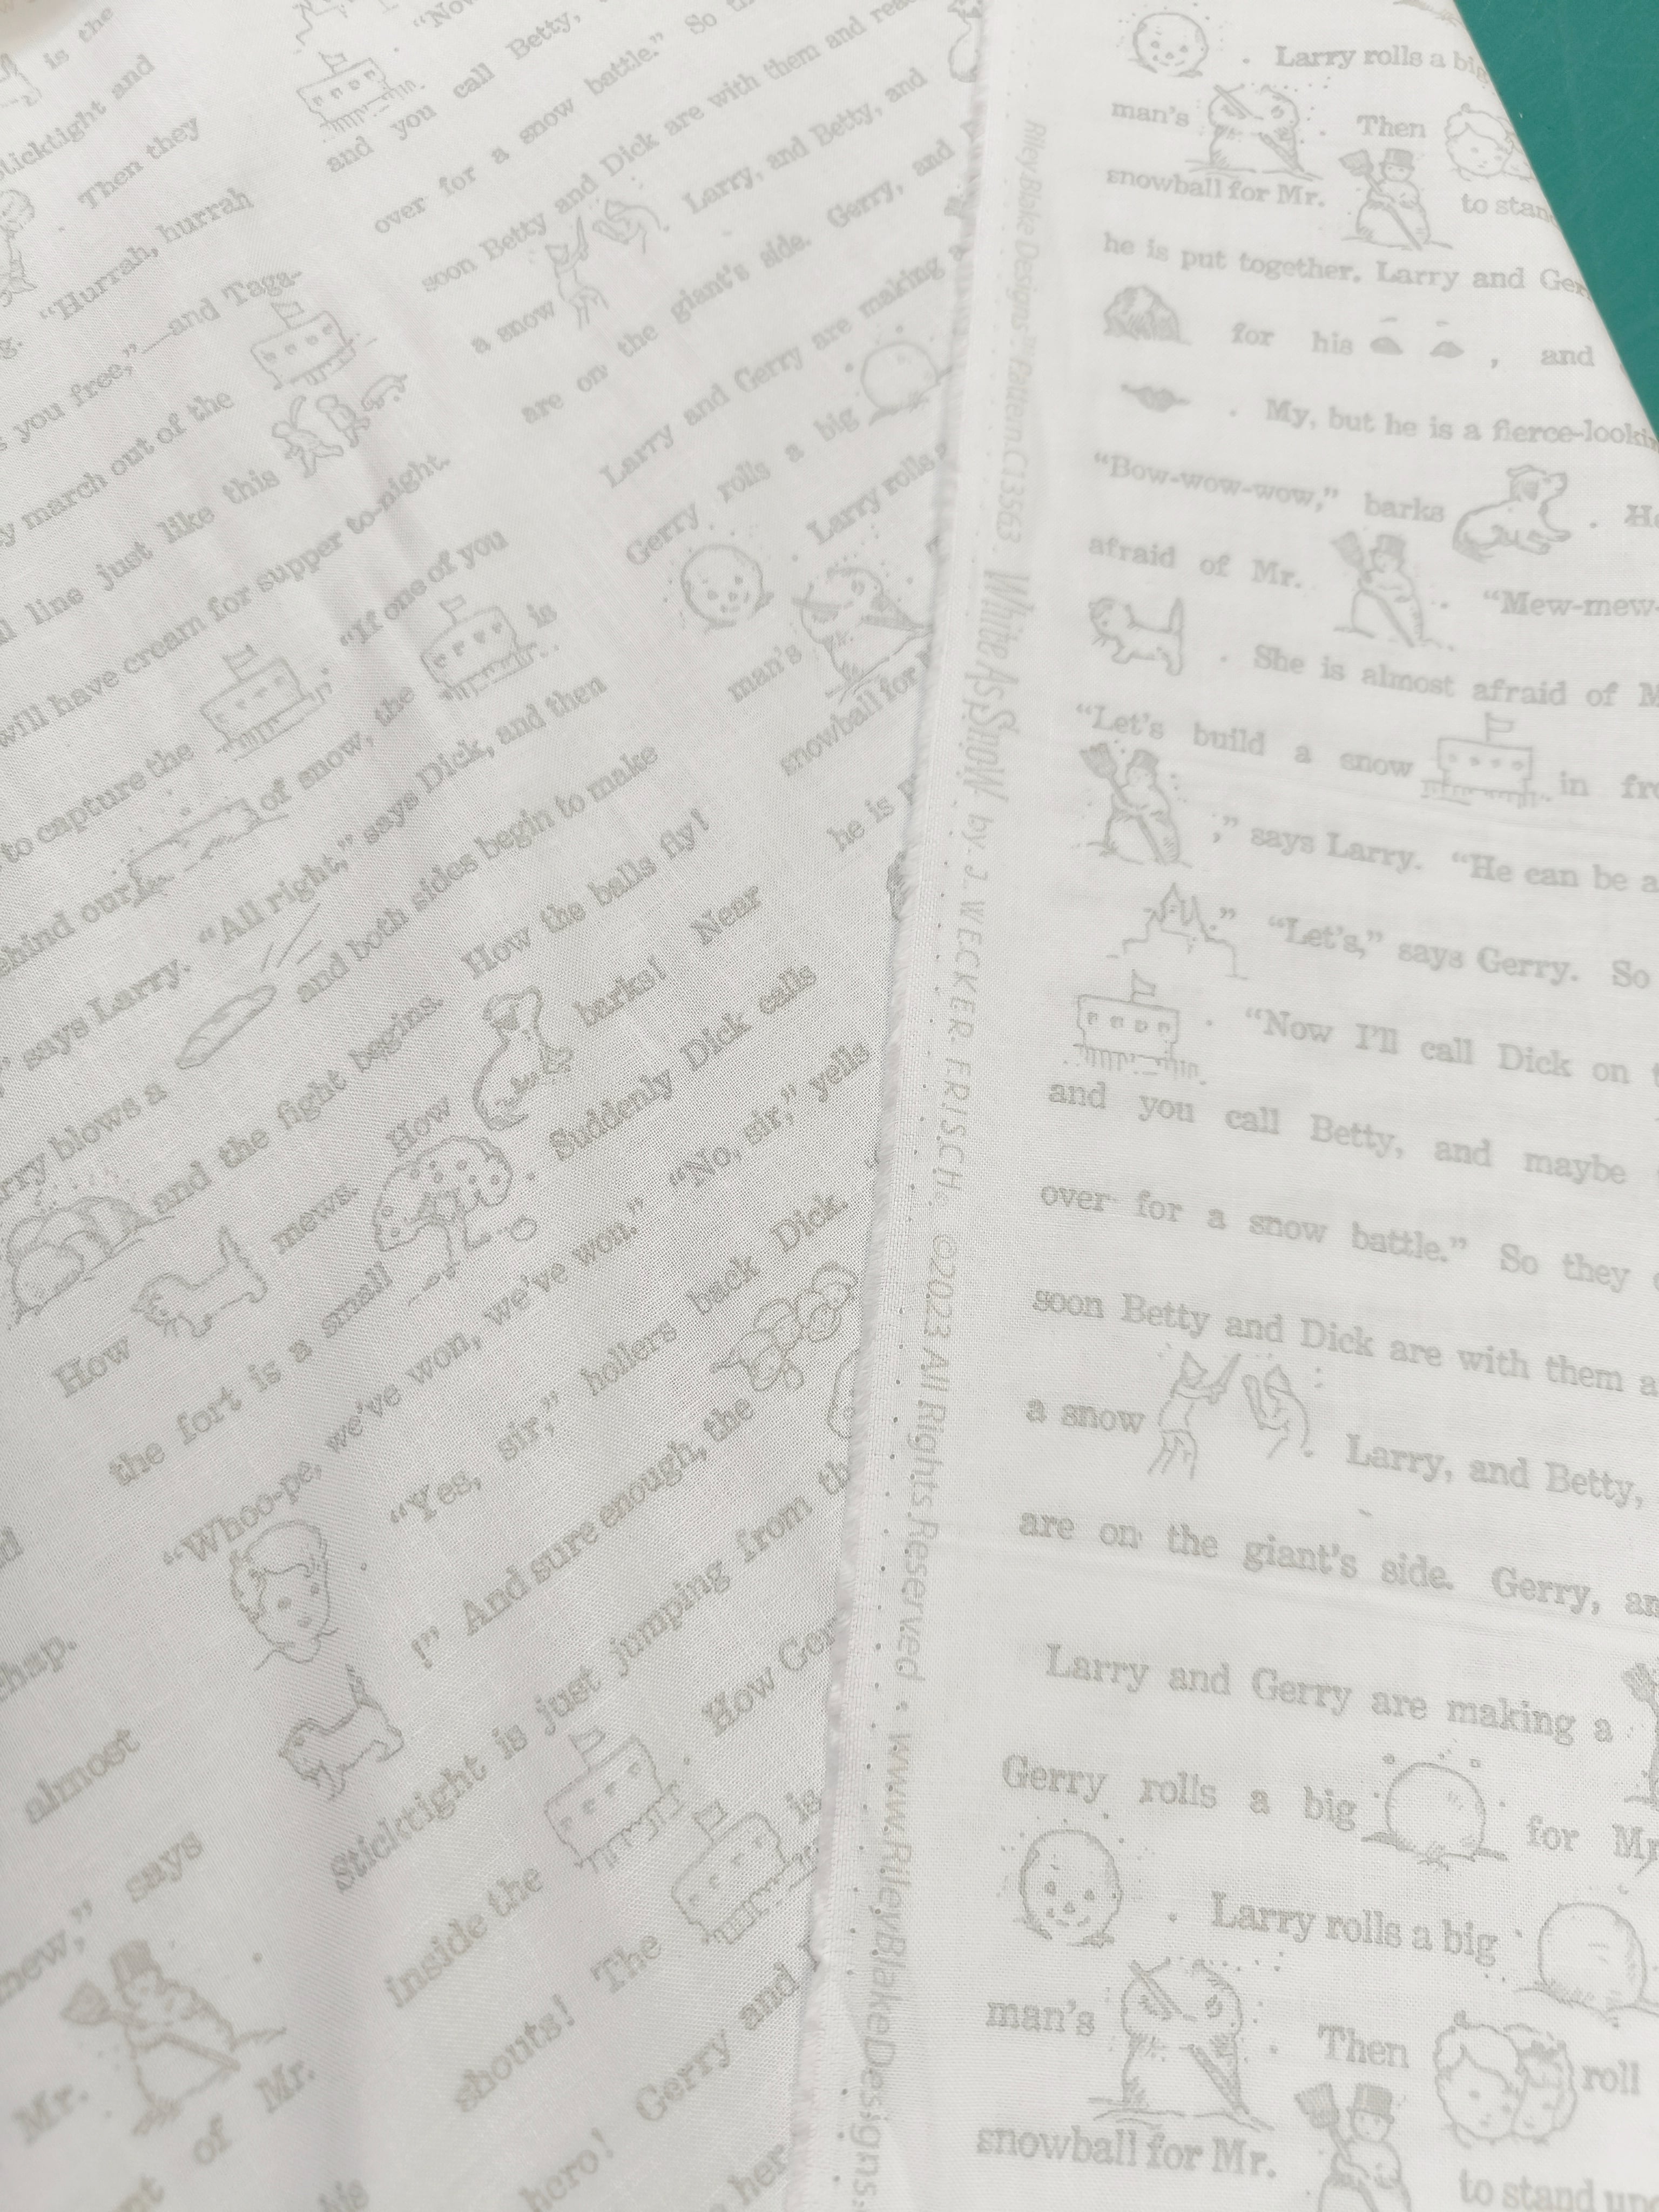 is the
Sticktight and
Then they
"Hurrah, hurrah
you free,"—and Taga-
march out of the
line just like this
will have cream for supper to-night.
"If one of you
to capture the
of snow, the
is
behind our
says Larry. "All right," says Dick, and then
blows a
and both sides begin to make
and the fight begins. How the balls fly!
How
mews. How
barks! Near
the fort is a small
. Suddenly Dick calls
"Whoo-pe, we've won, we've won, we've won." "No, sir," yells
. "Yes, sir," hollers back Dick.
!" And sure enough, the
Sticktight is just jumping from
inside the
. How
shouts! The
is
hero! Gerry and
her
chap.
almost
says
Mr.
of Mr.
and you call Betty,
over for a snow battle." So
soon Betty and Dick are with them and
a snow
Larry, and Betty, and
are on the giant's side. Gerry, and
Larry and Gerry are making a
Gerry rolls a big
. Larry rolls
man's
snowball for
he is
Riley Blake Designs • Pattern C13563 White As Snow by J. WECKER FRISCH. ©2023 All Rights Reserved • www.RileyBlakeDesigns.
. Larry rolls a big
man's
. Then
snowball for Mr.
to stan
he is put together. Larry and
for his
, and
. My, but he is a fierce-looki
"Bow-wow-wow," barks
.
afraid of Mr.
. "Mew-mew-
. She is almost afraid of
"Let's build a snow
in
," says Larry. "He can be a
." "Let's," says Gerry. So
. "Now I'll call Dick on
and you call Betty, and maybe
over for a snow battle." So they
soon Betty and Dick are with them
a snow
. Larry, and Betty,
are on the giant's side. Gerry,
Larry and Gerry are making a
Gerry rolls a big
for
. Larry rolls a big
man's
. Then
roll
snowball for Mr.
to stand